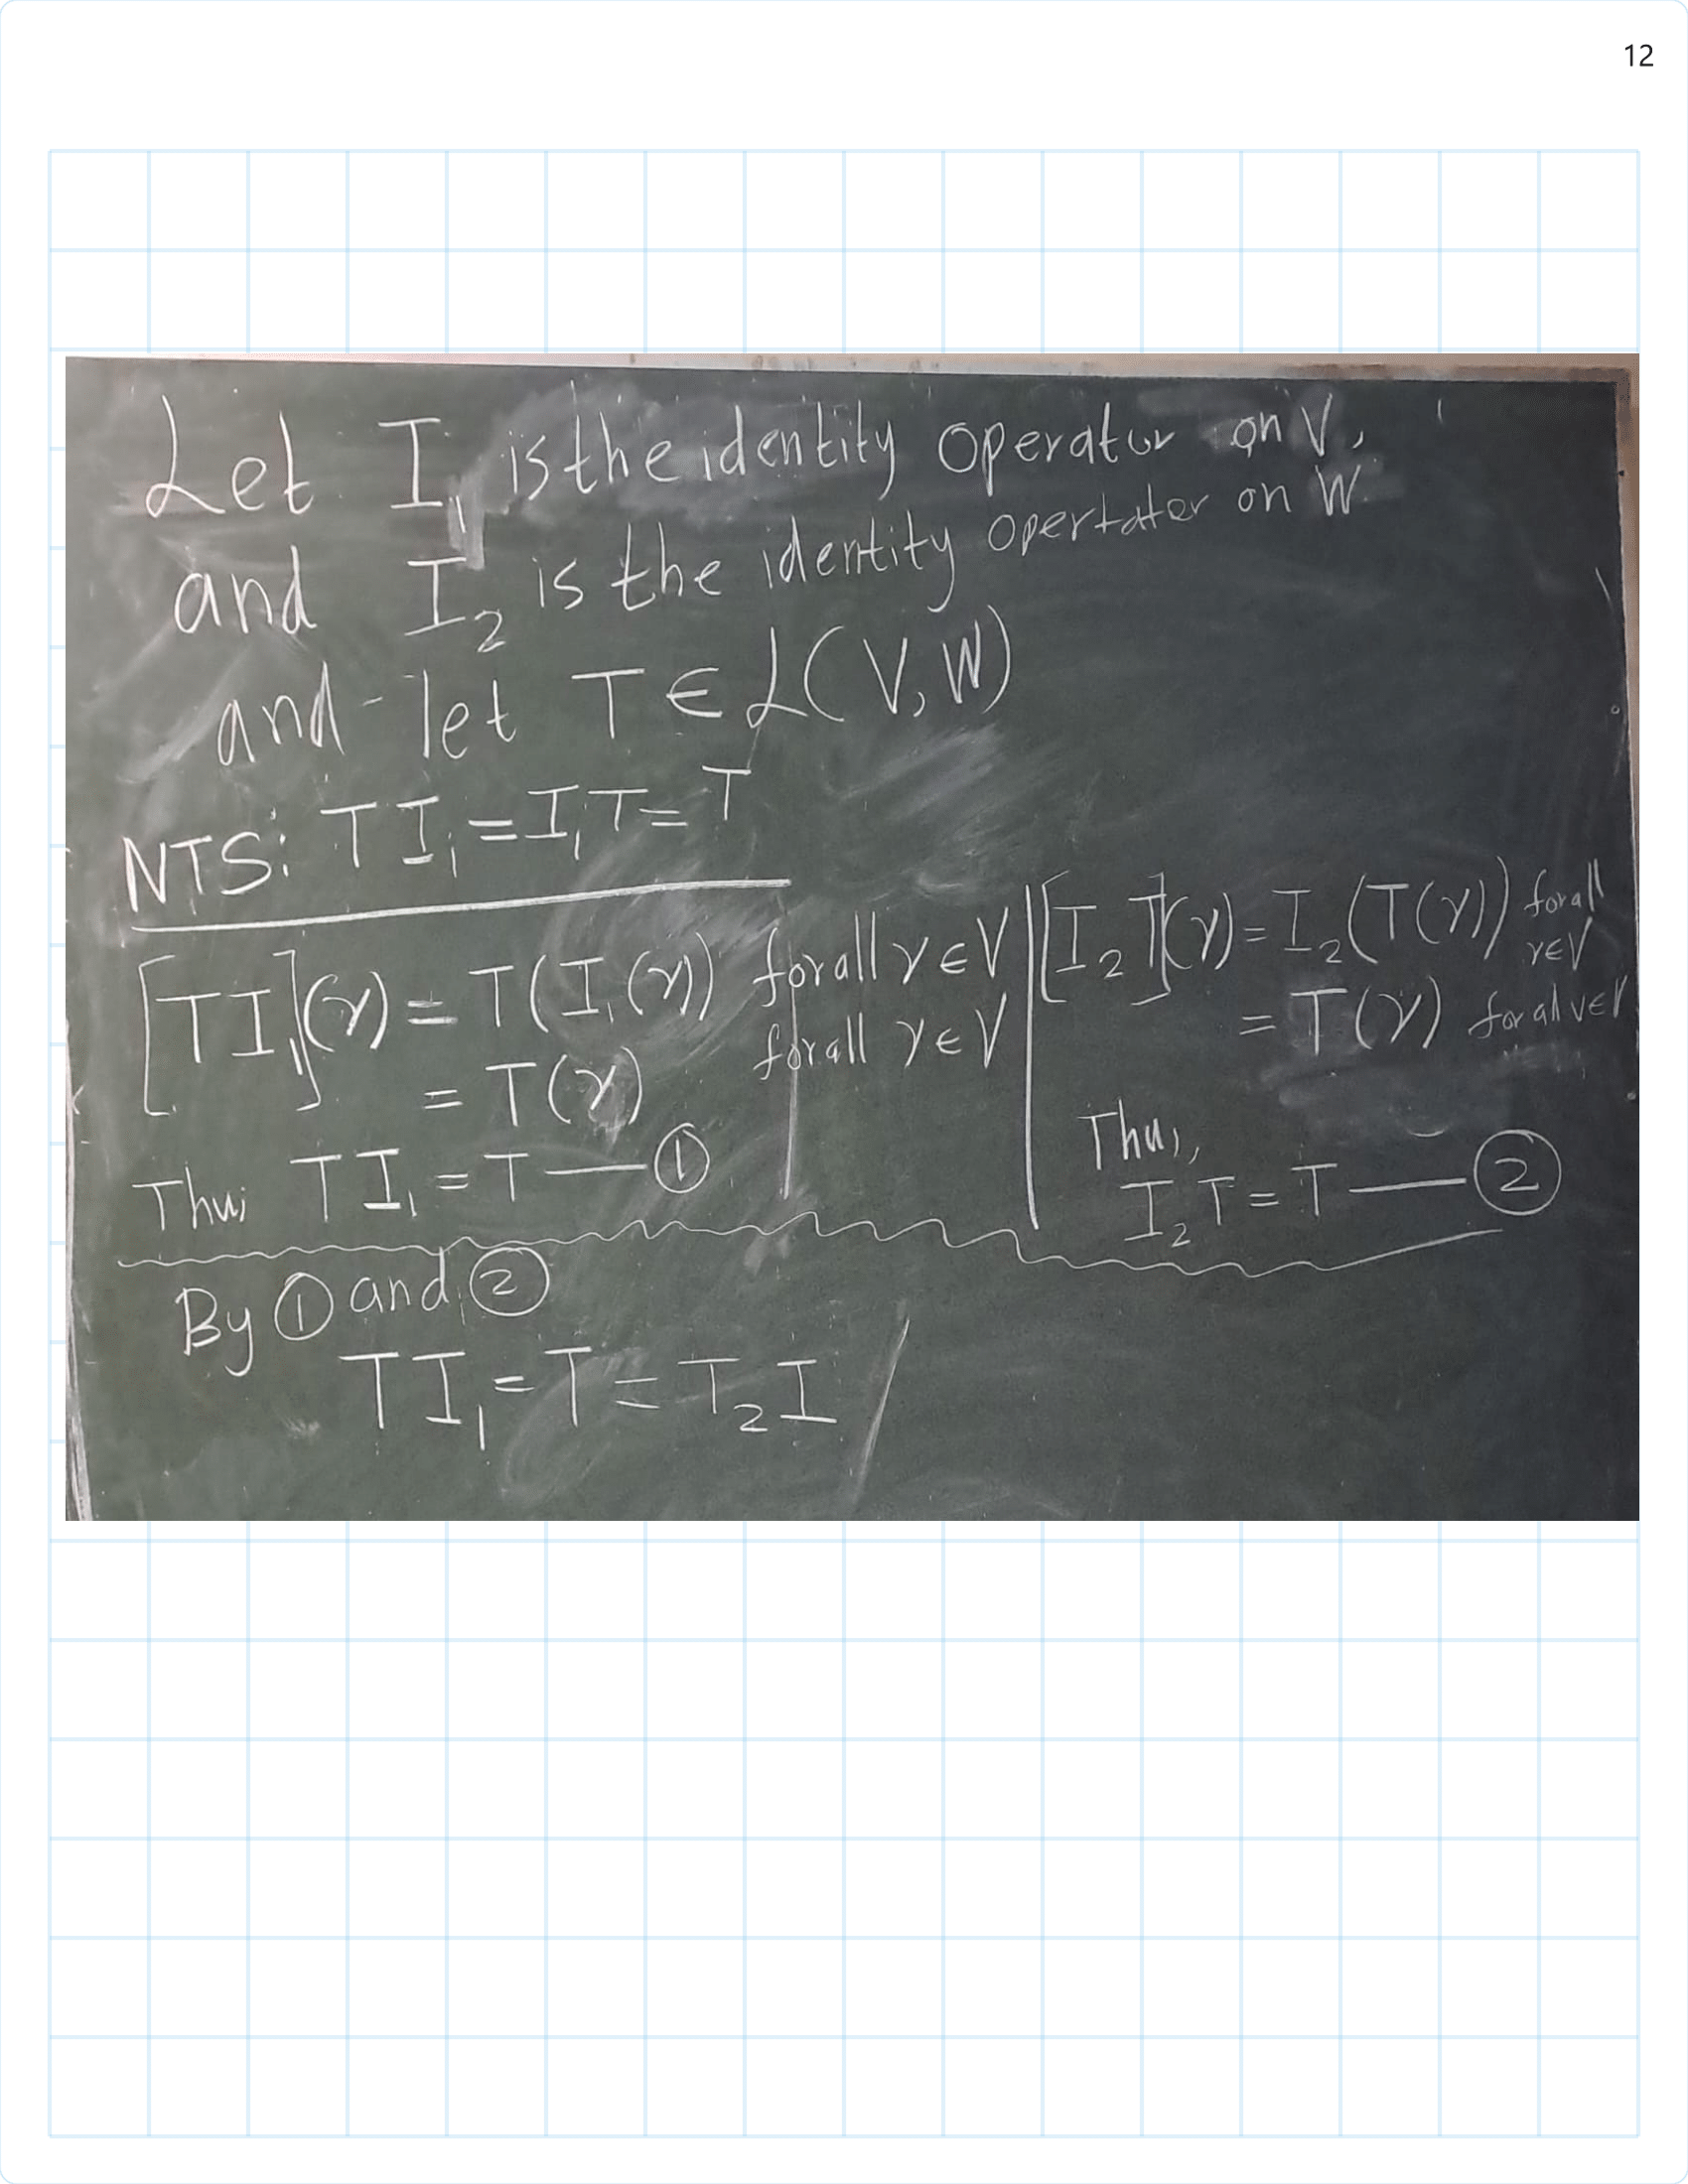 12
Let I₁ is the identity operator on V.
and I₂ is the identity opertater on W
and let T ∈ L(V, W)
NTS: TI₁ = I₁T = T
[TI₁](v) = T(I₁(v)) for all v ∈ V
= T(v) for all v ∈ V
Thus TI₁ = T — ①
[I₂T](v) = I₂(T(v)) for all v ∈ V
= T(v) for all v ∈ V
Thus,
I₂T = T — ②
By ① and ②
TI₁ = T = T₂I